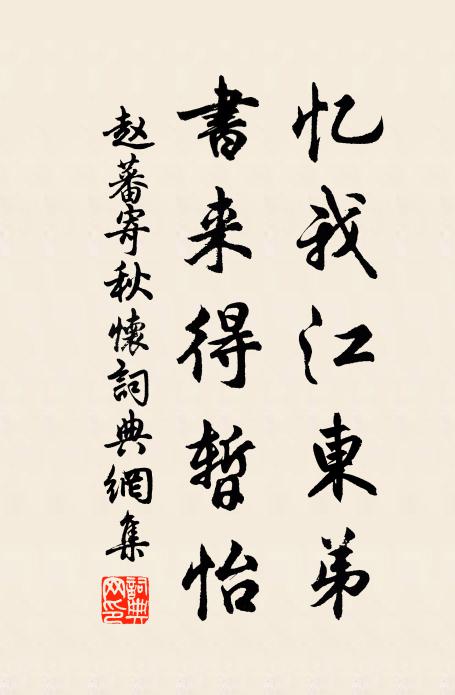 忆我江東弟
書来得暫怡
赵蕃寄秋懷詞典網集
詞典网印